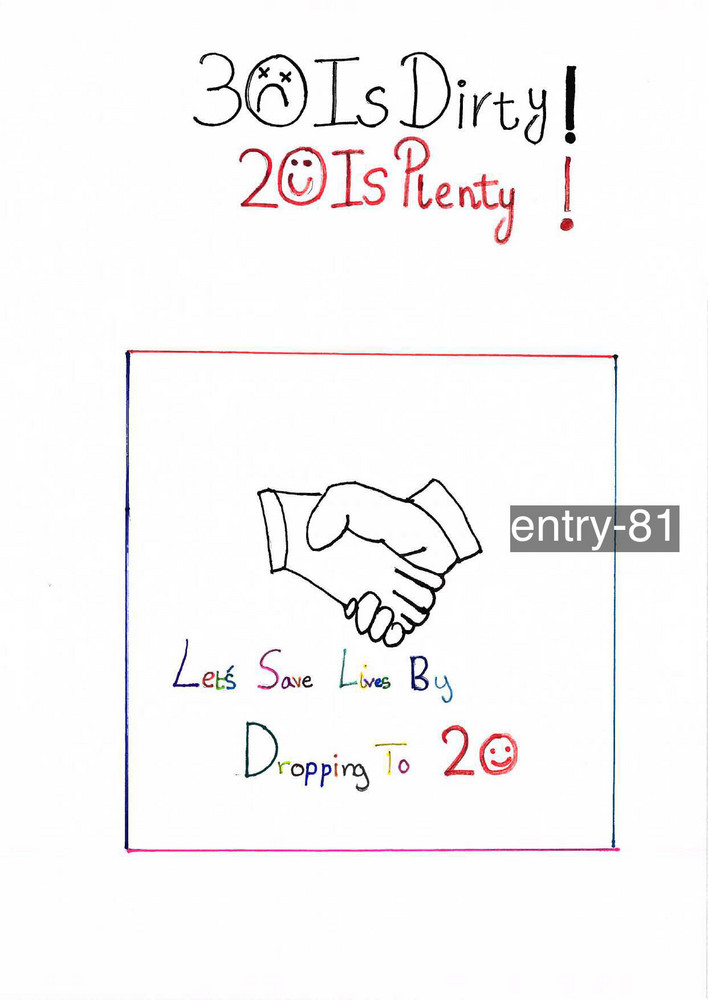 30 Is Dirty!
20 Is Plenty!
entry-81
Let's Save Lives By
Dropping To 20